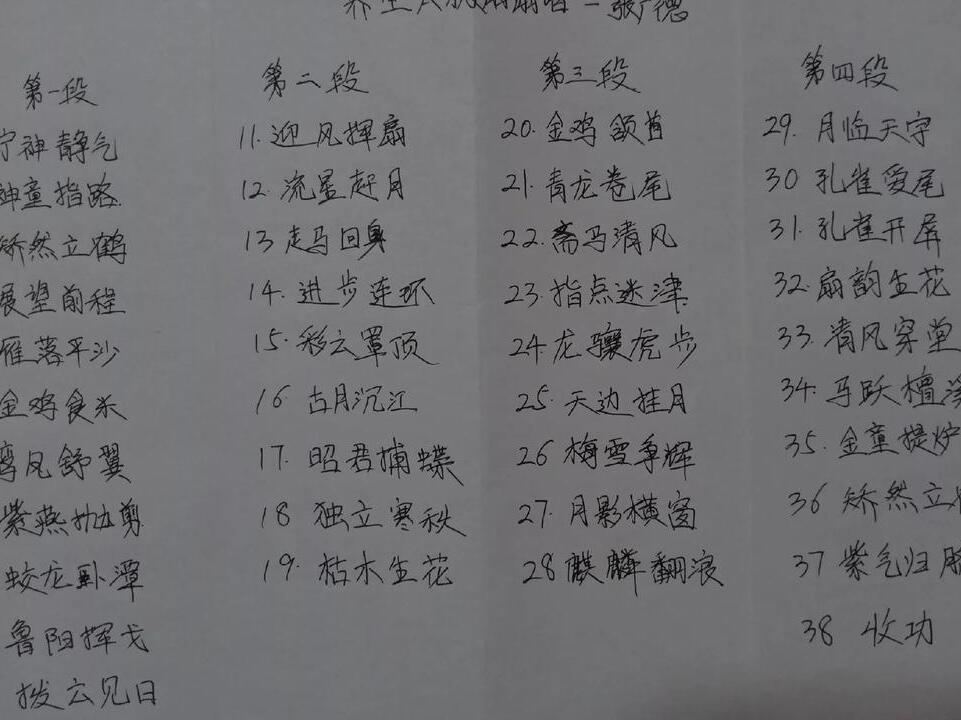 养生太极扇扇谱-张广德
第一段
宁神静气
神童指路
矫然立鹤
展望前程
雁落平沙
金鸡食米
鸾凤舒翼
紫燕抛剪
蛟龙卧潭
鲁阳挥戈
拨云见日
第二段
11.迎风挥扇
12.流星赶月
13走马回身
14.进步连环
15.彩云罩顶
16古月沉江
17.昭君捕蝶
18独立寒秋
19.枯木生花
第三段
20.金鸡颔首
21.青龙卷尾
22.斋马清风
23.指点迷津
24.龙骧虎步
25.天边挂月
26梅雪争辉
27.月影横窗
28麒麟翻浪
第四段
29.月临天宇
30孔雀爱尾
31.孔雀开屏
32.扇韵生花
33.清风穿堂
34.马跃檀
35.金童提炉
36矫然立
37紫气归
38收功